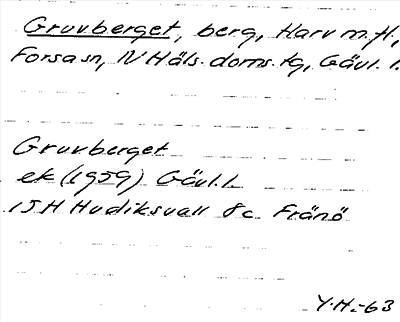 Gruvberget, berg, Harv m.fl.,
Forsa sn, N Häls. doms. tg, Gävl. l.
Gruvberget
ek (1959) Gävl. l.
15H Hudiksvall 8c Fränö
Y.H.-63